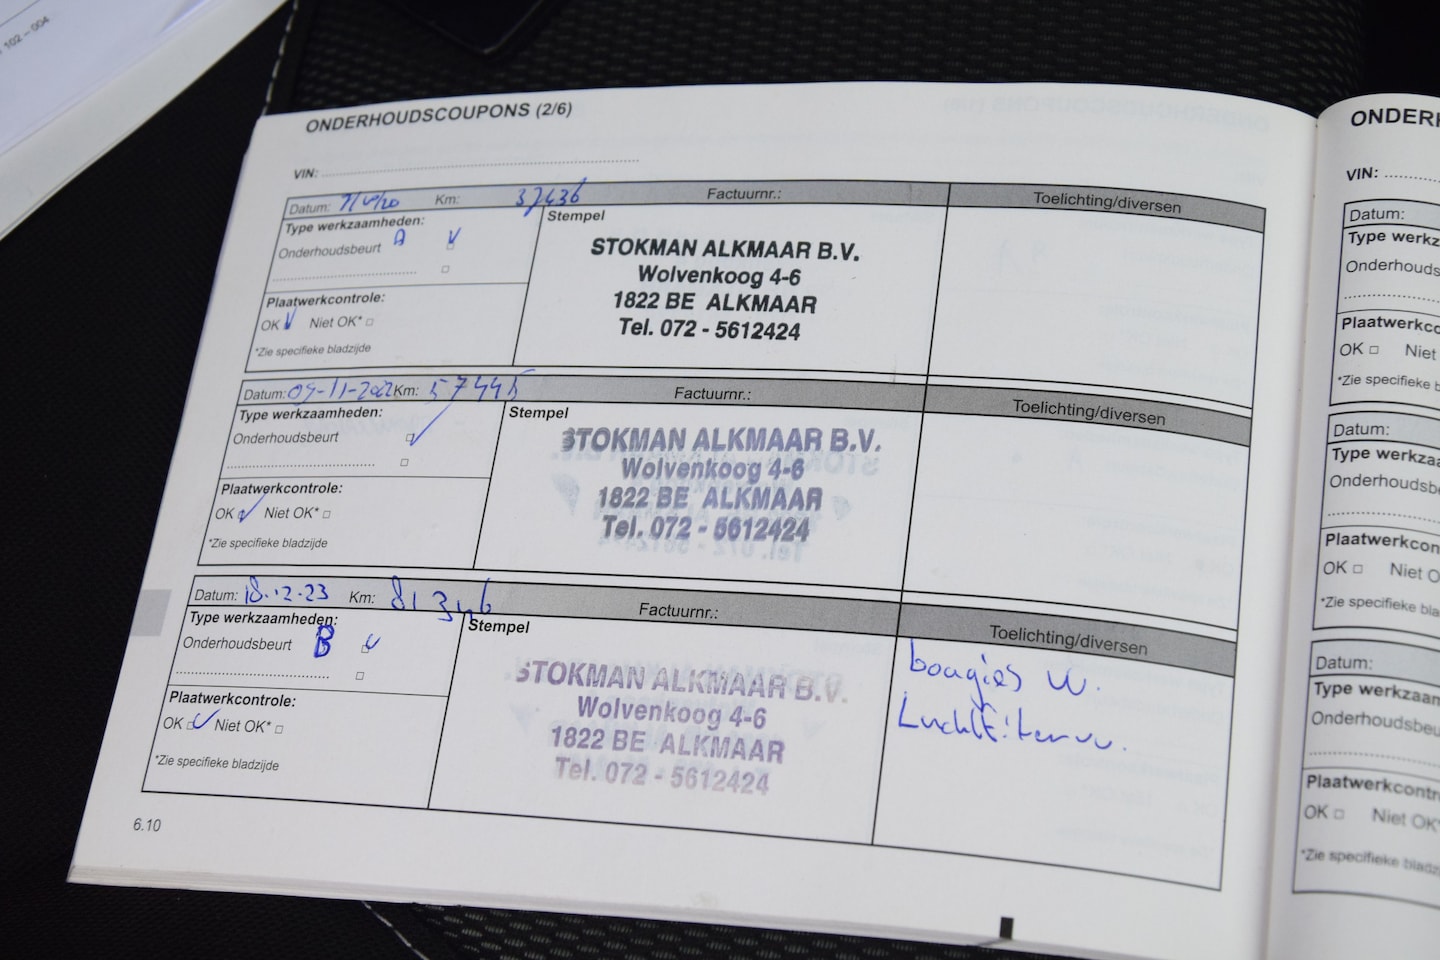 102 – 004
ONDERHOUDSCOUPONS (2/6)
VIN:
Datum: Km: 37436 Factuurnr.: Toelichting/diversen
Type werkzaamheden: Stempel
Onderhoudsbeurt A
STOKMAN ALKMAAR B.V.
Wolvenkoog 4-6
1822 BE ALKMAAR
Tel. 072 - 5612424
Plaatwerkcontrole:
OK Niet OK*
*Zie specifieke bladzijde
Datum: Km: 57445 Factuurnr.: Toelichting/diversen
Type werkzaamheden: Stempel
Onderhoudsbeurt
STOKMAN ALKMAAR B.V.
Wolvenkoog 4-6
1822 BE ALKMAAR
Tel. 072 - 5612424
Plaatwerkcontrole:
OK Niet OK*
*Zie specifieke bladzijde
Datum: 18-12-23 Km: 81346 Factuurnr.: Toelichting/diversen
Type werkzaamheden: Stempel
Onderhoudsbeurt B
STOKMAN ALKMAAR B.V.
Wolvenkoog 4-6
1822 BE ALKMAAR
Tel. 072 - 5612424
bougies W.
Luchtfilter vv.
Plaatwerkcontrole:
OK Niet OK*
*Zie specifieke bladzijde
6.10
ONDERH
VIN:
Datum:
Type werkz
Onderhouds
Plaatwerkco
OK Niet
*Zie specifieke b
Datum:
Type werkzaa
Onderhoudsb
Plaatwerkcon
OK Niet O
*Zie specifieke bla
Datum:
Type werkzaam
Onderhoudsbeu
Plaatwerkcontr
OK Niet OK*
*Zie specifieke bladz